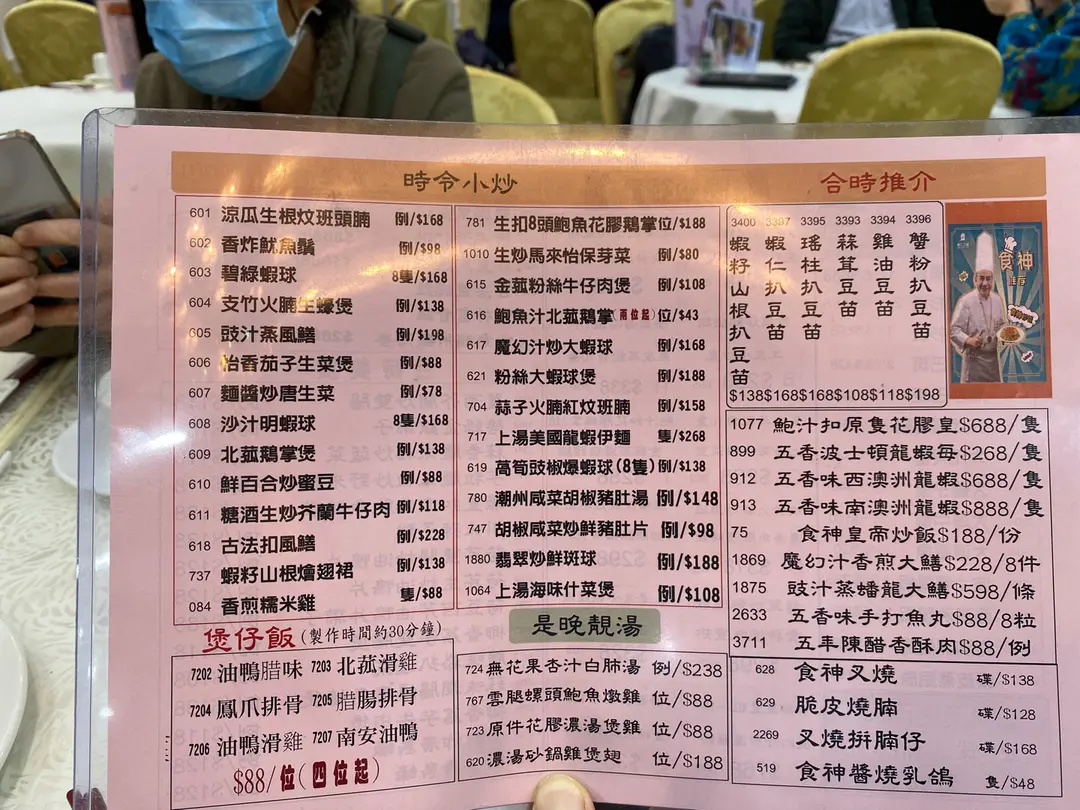 時令小炒
601 涼瓜生根炆班頭腩 例/$168
602 香炸魷魚鬚 例/$98
603 碧綠蝦球 8隻/$168
604 支竹火腩生蠔煲 例/$138
605 豉汁蒸風鱔 例/$198
606 怡香茄子生菜煲 例/$88
607 麵醬炒唐生菜 例/$78
608 沙汁明蝦球 8隻/$168
609 北菰鵝掌煲 例/$138
610 鮮百合炒蜜豆 例/$88
611 糖酒生炒芥蘭牛仔肉 例/$118
618 古法扣風鱔 例/$228
737 蝦籽山根燴翅裙 例/$138
084 香煎糯米雞 隻/$88
781 生扣8頭鮑魚花膠鵝掌 位/$188
1010 生炒馬來怡保芽菜 例/$80
615 金菰粉絲牛仔肉煲 例/$108
616 鮑魚汁北菰鵝掌(兩位起) 位/$43
617 魔幻汁炒大蝦球 例/$168
621 粉絲大蝦球煲 例/$188
704 蒜子火腩紅炆班腩 例/$158
717 上湯美國龍蝦伊麵 隻/$268
619 萵筍豉椒爆蝦球(8隻) 例/$138
780 潮州咸菜胡椒豬肚湯 例/$148
747 胡椒咸菜炒鮮豬肚片 例/$98
1880 翡翠炒鮮斑球 例/$188
1064 上湯海味什菜煲 例/$108
合時推介
3400 蝦籽山根扒豆苗 $138
3397 蝦仁扒豆苗 $168
3395 瑤柱扒豆苗 $168
3393 蒜茸豆苗 $108
3394 雞油豆苗 $118
3396 蟹粉扒豆苗 $198
食神
1077 鮑汁扣原隻花膠皇$688/隻
899 五香波士頓龍蝦每$268/隻
912 五香味西澳洲龍蝦$688/隻
913 五香味南澳洲龍蝦$888/隻
75 食神皇帝炒飯$188/份
1869 魔幻汁香煎大鱔$228/8件
1875 豉汁蒸蟠龍大鱔$598/條
2633 五香味手打魚丸$88/8粒
3711 五年陳醋香酥肉$88/例
煲仔飯(製作時間約30分鐘)
7202 油鴨腊味 7203 北菰滑雞
7204 鳳爪排骨 7205 腊腸排骨
7206 油鴨滑雞 7207 南安油鴨
$88/位(四位起)
是晚靚湯
724 無花果杏汁白肺湯 例/$238
767 雲腿螺頭鮑魚燉雞 位/$88
723 原件花膠濃湯煲雞 位/$88
620 濃湯砂鍋雞煲翅 位/$188
628 食神叉燒 碟/$138
629 脆皮燒腩 碟/$128
2269 叉燒拼腩仔 碟/$168
519 食神醬燒乳鴿 隻/$48